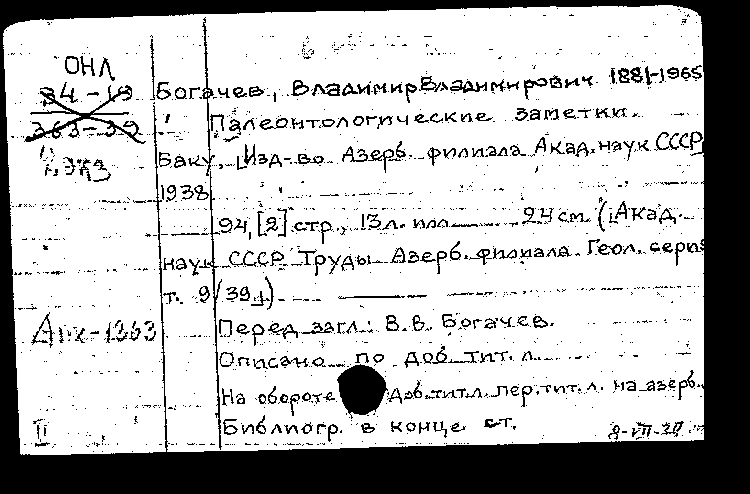 ОНЛ
34-19
363-39
Богачев, Владимир Владимирович 1881-1965
Палеонтологические заметки.
Баку, Изд-во Азерб. филиала Акад. наук СССР,
1938.
94, [2] стр., 13 л. илл. 24 см. (Акад.
наук СССР. Труды Азерб. филиала. Геол. серия
т. 9/39)
Перед загл.: В.В. Богачев.
Описано по доб. тит. л.
На обороте доб. тит. л. пер. тит. л. на азерб.
Библиогр. в конце ст.
II